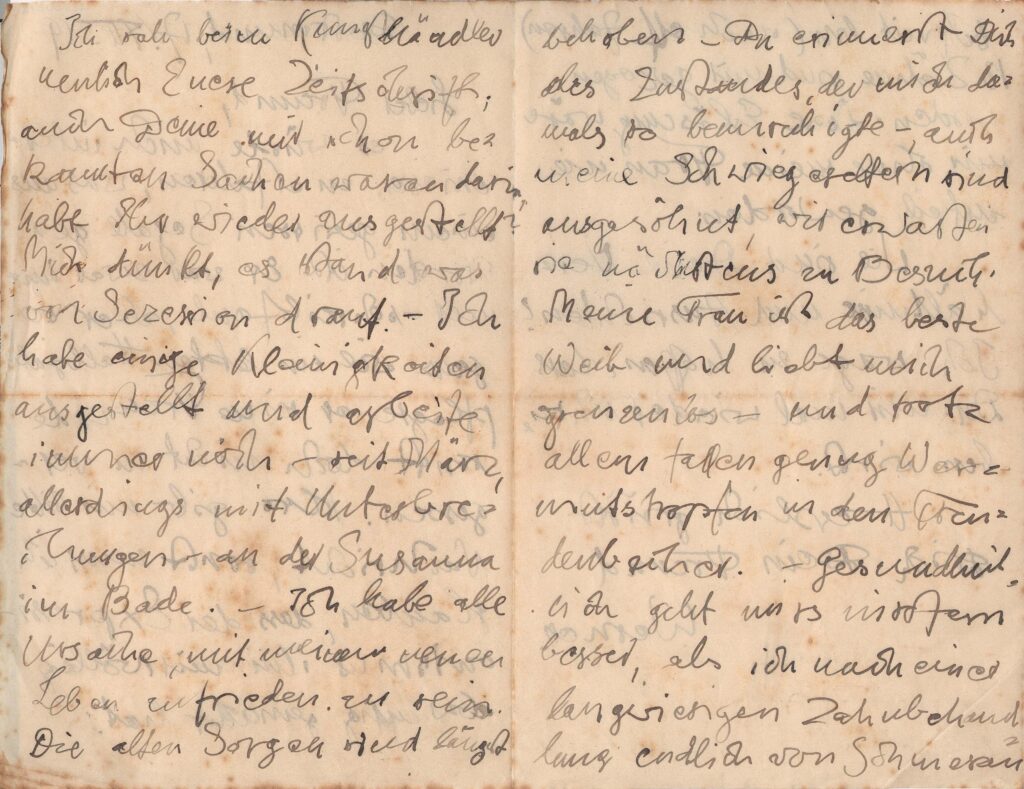 Ich sah beim Kunsthändler
neulich Eure Zeitschrift;
auch Deine mir schon be=
kannten Sachen waren darin,
habt Ihr wieder ausgestellt?
Mich dünkt, es stand was
von Sezession drauf. – Ich
habe einige Kleinigkeiten
ausgestellt und arbeite
immer noch – seit März,
allerdings mit Unterbre=
chungen – an der Susanna
im Bade. – Ich habe alle
Ursache, mit meinem neuen
Leben zufrieden zu sein.
Die alten Sorgen sind längst
behoben – Du erinnerst Dich
des Zustandes, der mich da=
mals so beunruhigte –, auch
meine Schwiegereltern sind
ausgesöhnt, wir erwarten
sie nächstens zu Besuch.
Meine Frau ist das beste
Weib und liebt mich
grenzenlos – und trotz
allem fallen genug Wer=
mutstropfen in den Freu=
denbecher. – Gesundheit=
lich geht mirs insofern
besser, als ich nach einer
langwierigen Zahnbehand=
lung endlich von Schmerzen